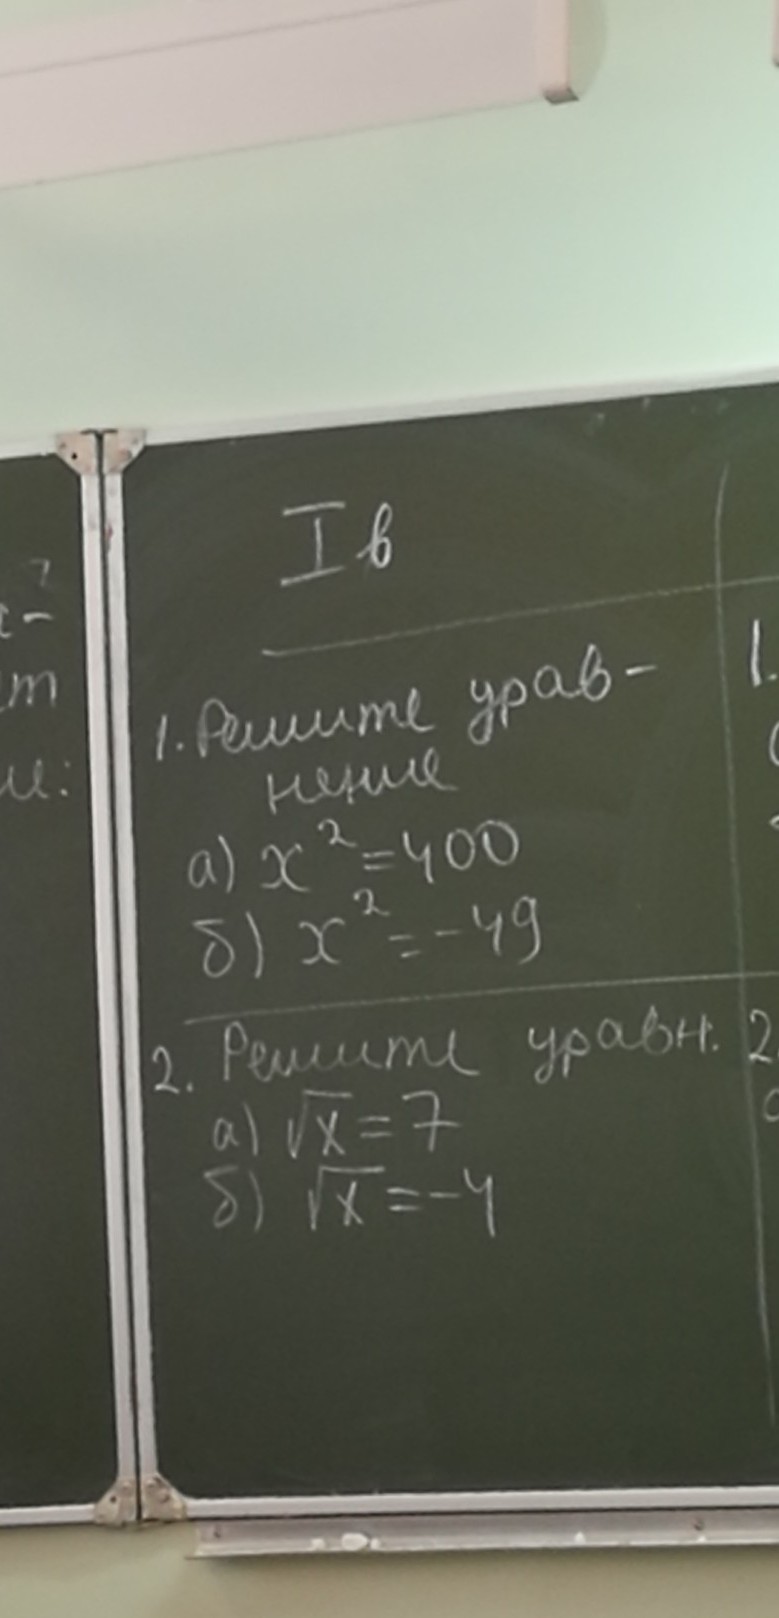 I в
1. Решите урав-
нение
а) x² = 400
б) x² = -49
2. Решите уравн.
а) √x = 7
б) √x = -4
1.
2.